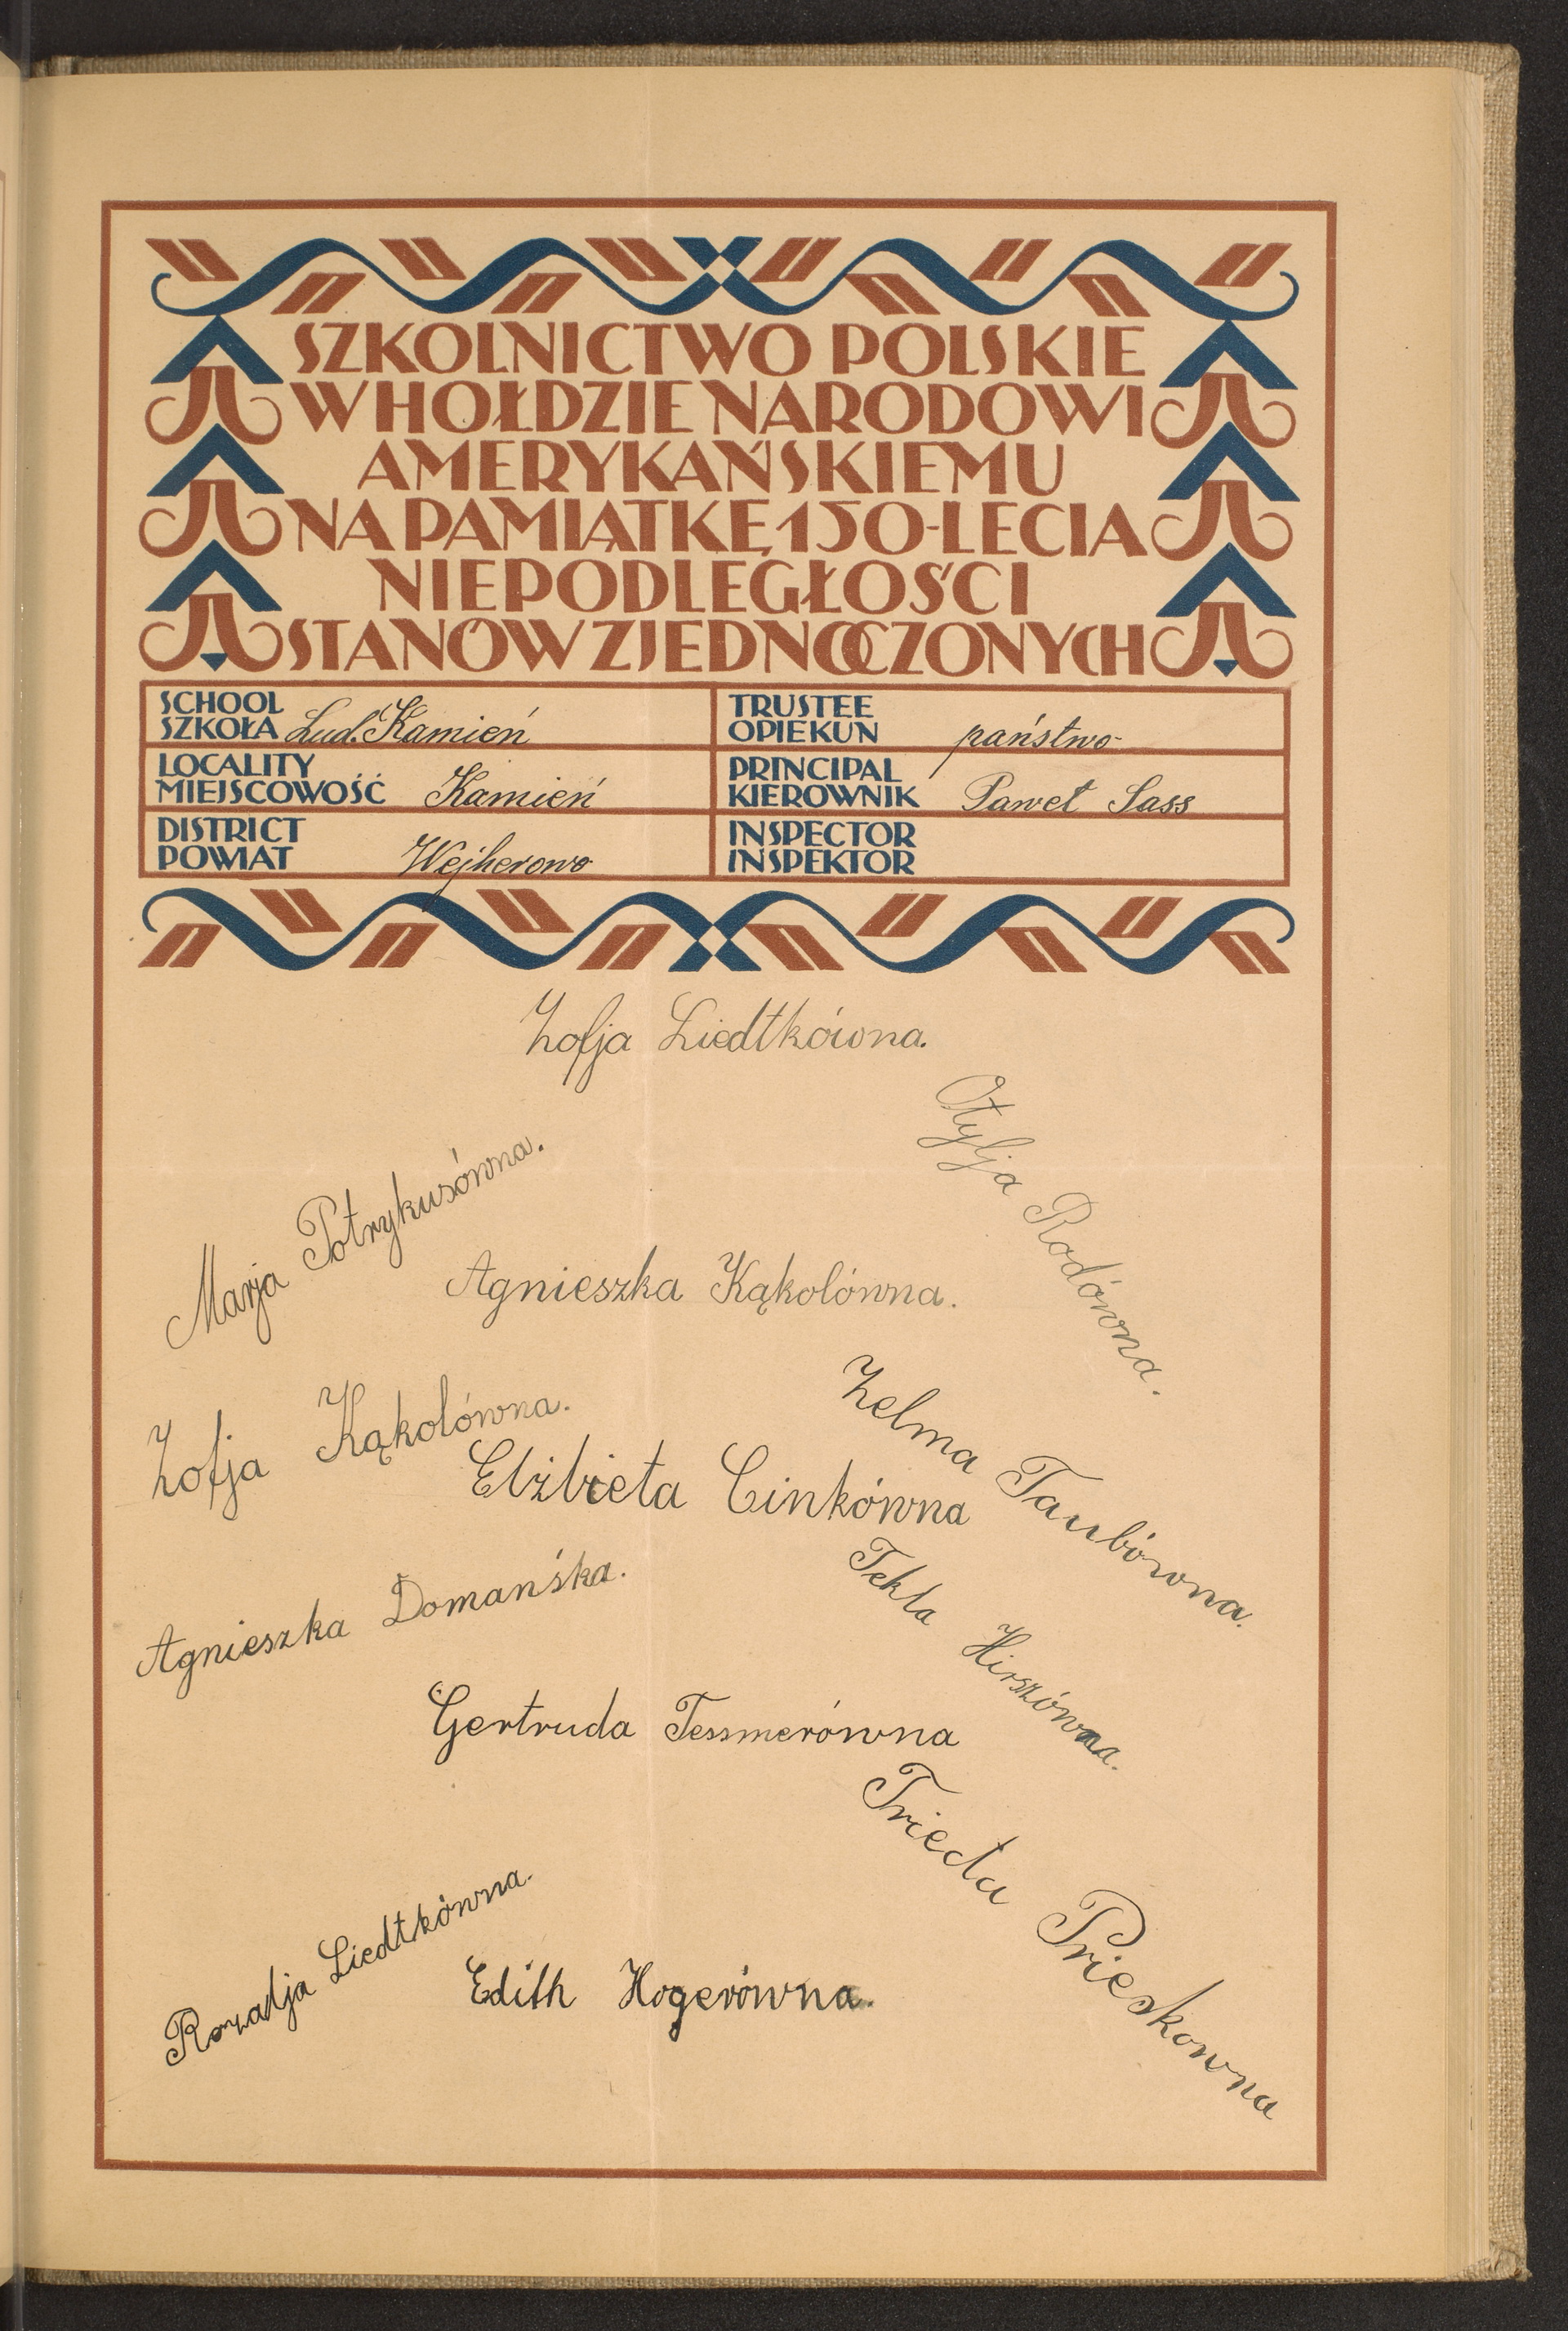 SZKOLNICTWO POLSKIE
W HOŁDZIE NARODOWI
AMERYKAŃSKIEMU
NA PAMIĄTKĘ 150-LECIA
NIEPODLEGŁOŚCI
STANÓW ZJEDNOCZONYCH
SCHOOL
SZKOŁA Lud. Kamień
TRUSTEE
OPIEKUN państwo
LOCALITY
MIEJSCOWOŚĆ Kamień
PRINCIPAL
KIEROWNIK Paweł Sass
DISTRICT
POWIAT Wejherowo
INSPECTOR
INSPEKTOR
Zofja Liedtkówna.
Otylja Rodówna.
Marja Potrykusówna.
Agnieszka Kąkolówna.
Zofja Kąkolówna.
Zelma Taubówna.
Elżbieta Cinkówna
Tekla Hirszówna.
Agnieszka Domańska.
Gertruda Tessmerówna
Frieda Prieskowna
Rozalja Liedtkówna.
Edith Hogerówna.